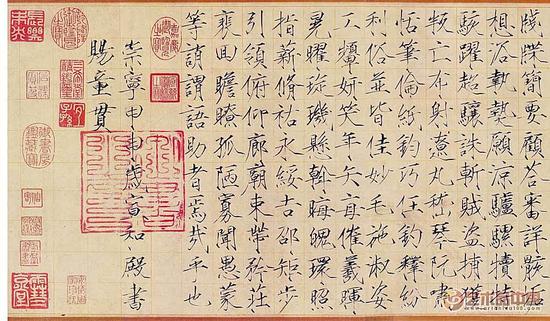 牋牒簡要顧答審詳骸垢
想浴執熱願涼驢騾犢特
駭躍超驤誅斬賊盜捕獲
叛亡布射遼丸嵇琴阮嘯
恬筆倫紙鈞巧任釣釋紛
利俗並皆佳妙毛施淑姿
工顰妍笑年矢每催羲暉
晃曜琁璣懸斡晦魄環照
指薪脩祜永綏吉邵矩步
引領俯仰廊廟束帶矜莊
裵回瞻眺孤陋寡聞愚蒙
等誚謂語助者焉哉乎也
崇寧甲申歲宣和殿書
賜童貫